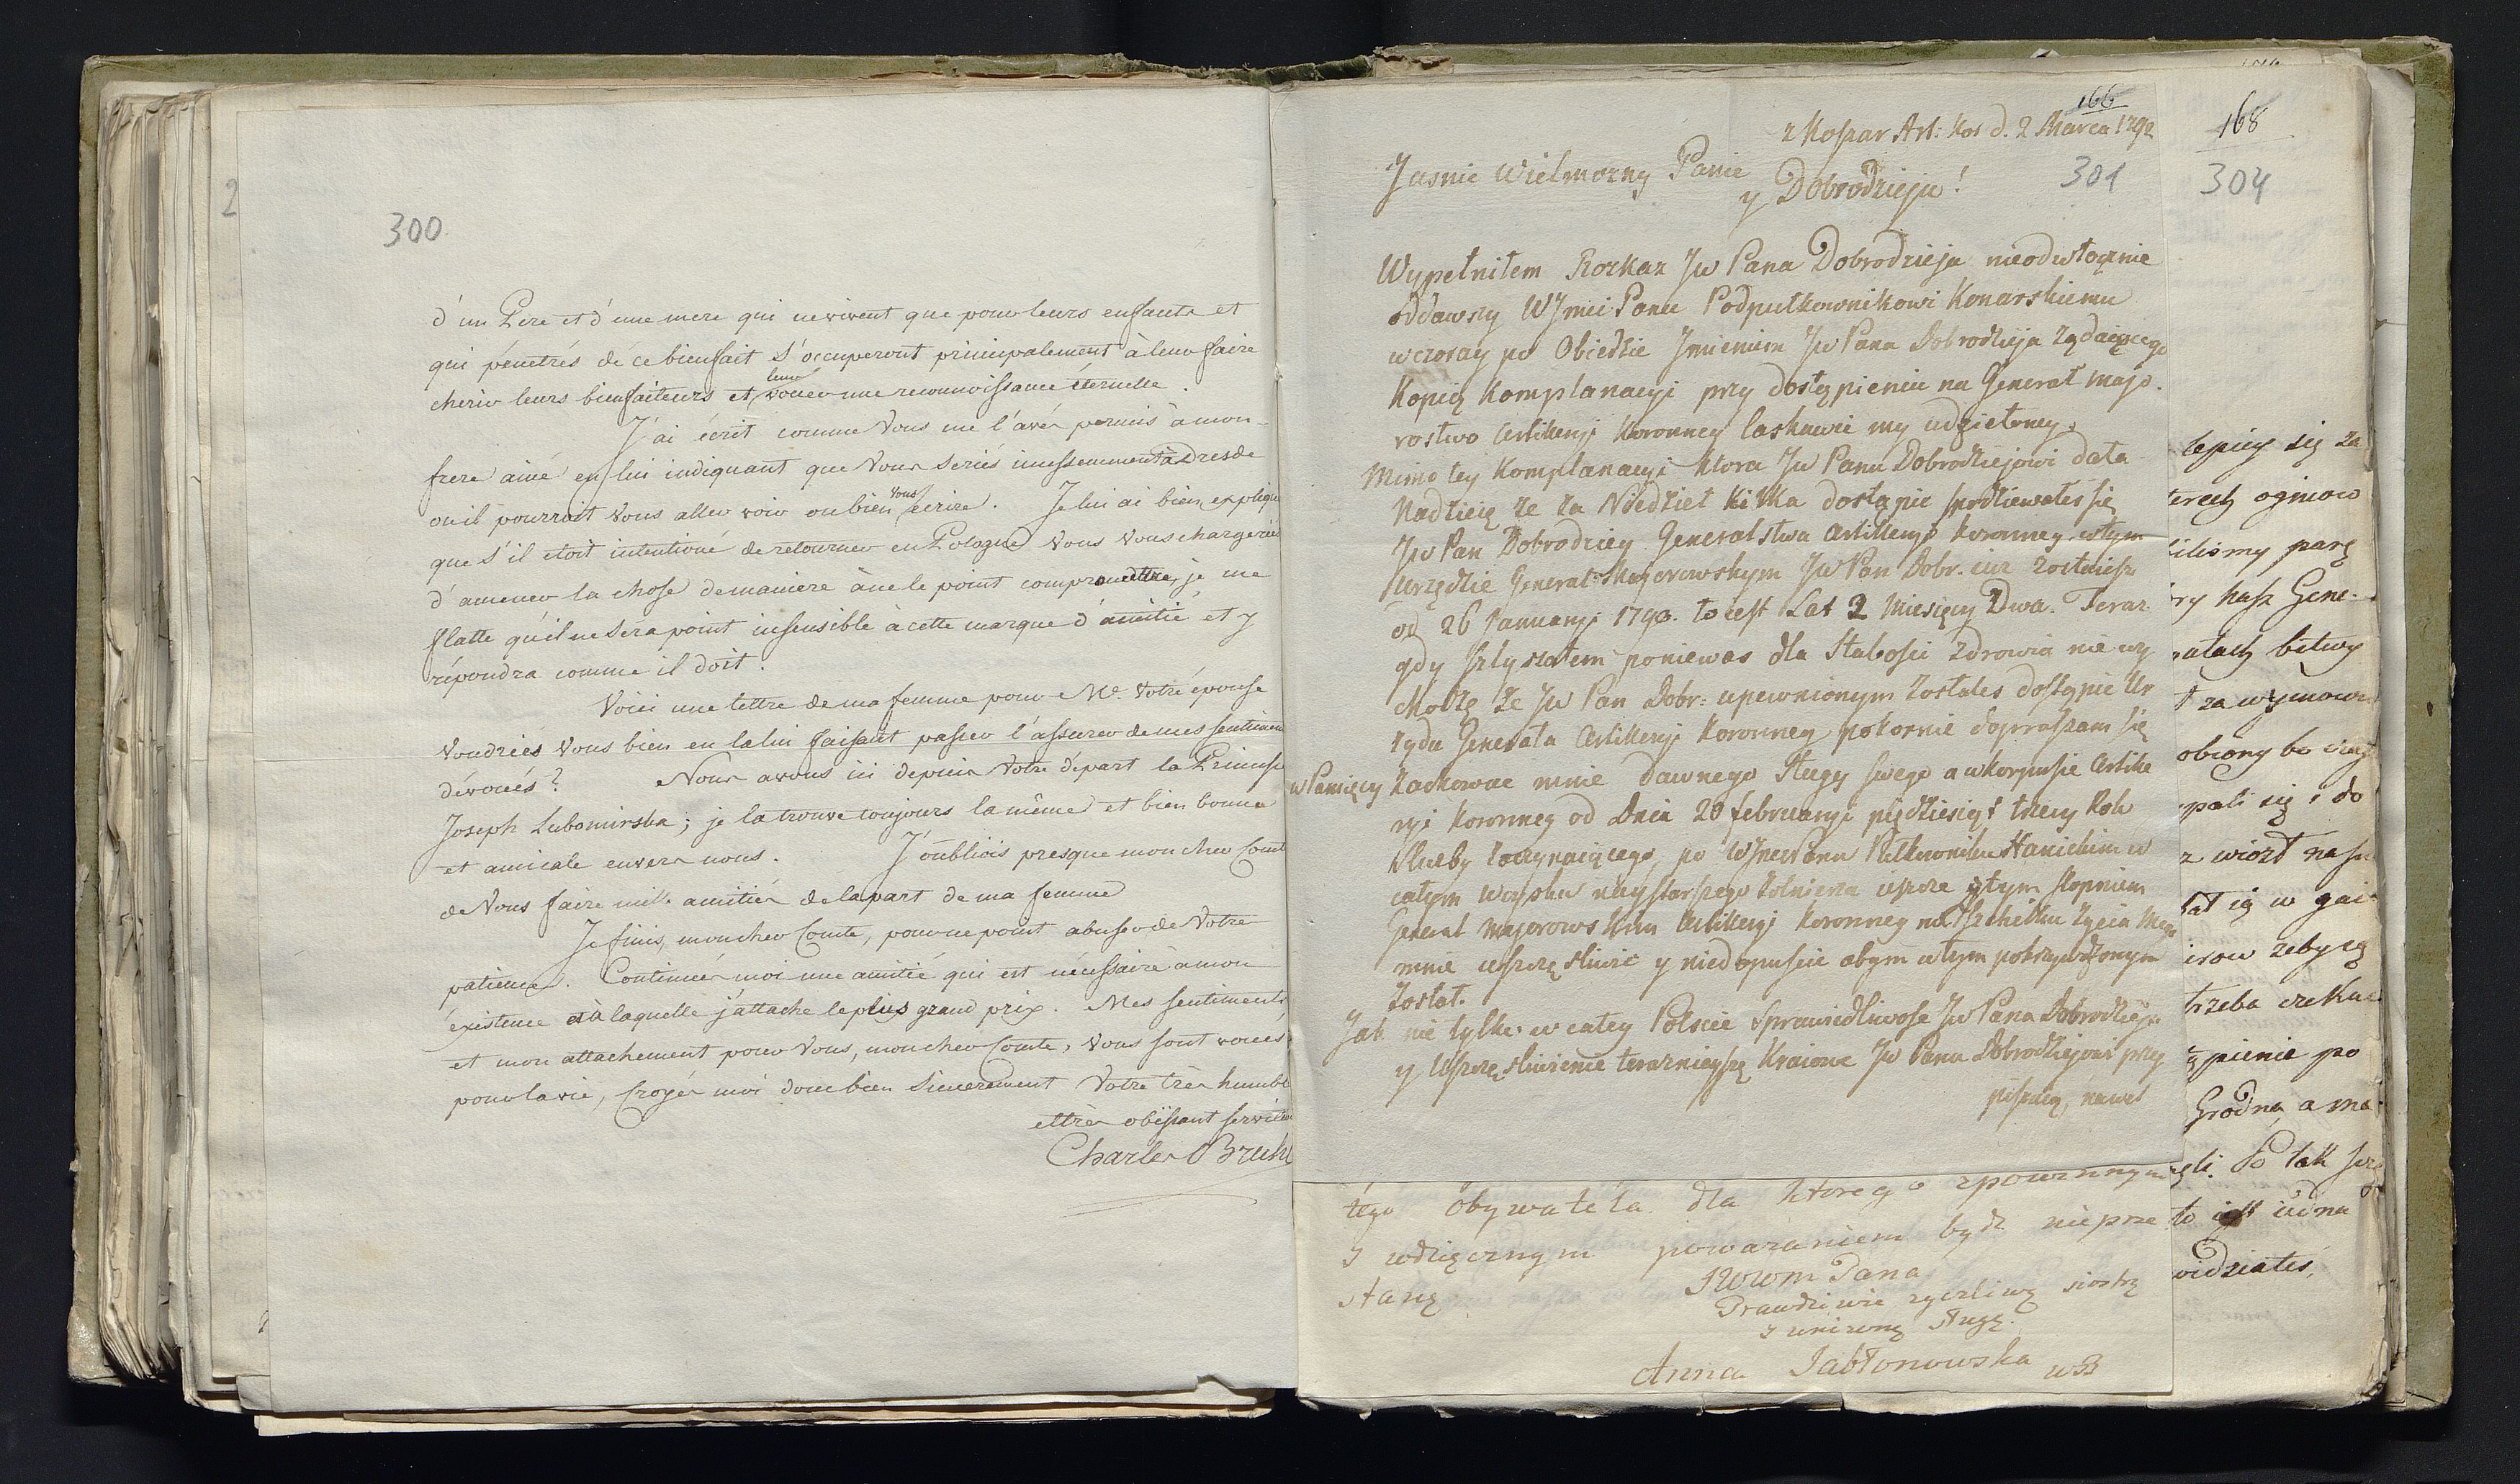 300
d'un Pere et d'une mere qui ne vivent que pour leurs enfants et
qui pénétrés de ce bienfait s'occuperont principalement à leur faire
cherir leurs bienfaiteurs et leur vouer une reconnoissance éternelle.
J'ai écrit comme Vous me l'avés permis à mon
frere ainé en lui indiquant que Vous seriés incessemment à Dresde
où il pourroit Vous aller voir ou bien Vous écrire. Je lui ai bien expliqué
que s'il etoit intentioné de retourner en Pologne Vous Vous chargeriés
d'amener la chose de maniere à ne le point compromettre, je me
flatte qu'il ne sera point insensible à cette marque d'amitié et y
répondra comme il doit.
Voici une lettre de ma femme pour Me. Votre épouse
Voudriés Vous bien en la lui faisant passer l'assurer de mes sentimens
dévoués? Nous avons ici depuis Votre départ la Princesse
Joseph Lubomirska; je la trouve toujours la même et bien bonne
et amicale envers nous. J'oubliois presque mon cher Comte
de Vous faire mille amitiés de la part de ma femme
Je finis, mon cher Comte, pour ne point abuser de Votre
patience. Continués moi une amitié qui est nécessaire à mon
éxistence et à laquelle j'attache le plus grand prix. Mes sentiments
et mon attachement pour Vous, mon cher Comte, Vous sont voués
pour la vie, Croyés moi donc bien sincerement Votre très humble
et très obéissant serviteur
Charles Bruhl
166
z Koszar Art: Kor d. 2 Marca 1792
301
Jasnie Wielmozny Panie
y Dobrodzieju!
Wypełniłem Rozkaz Jw Pana Dobrodzieja nieodwłocznie
oddawszy WJmci Panu Podpułkownikowi Konarskiemu
wczoray po Obiedzie Jmieniem Jw Pana Dobrodzieja żądaiącego
Kopią Komplanacyi przy dostąpieniu na Generał majo.
rostwo Artilleryi Koronney łaskawie my udzieloney.
Mimo tey Komplanacyi ktora Jw Panu Dobrodziejowi dała
Nadzieię że za Niedziel Kilka dostąpic spodziewałeś się
Jw Pan Dobrodziey Generalstwa Artilleryi Koronney w tym
Urzędzie Generał-Majorowskym Jw Pan Dobr. iuz zostaiesz
od 26 Januaryi 1790. to iest Lat 2 Miesięcy Dwa. Teraz
gdy słyszałem poniewas dla Słabosci zdrowia nie wy
chodzę że Jw Pan Dobr: upewnionym zostales dostąpic Ur
zędu Generała Artilleryi Koronney pokornie dopraszam się
w Pamięcy zachowac mnie dawnego Sługę swego a w korpusie Artile
ryi Koronney od Dnia 20 februaryi piędziesiąt trzecy Rok
Służby zaczynaiącego, po WJmci Panu Pułkowniku Hanickim w
całym woysku naystarszego żołnierza ieszcze z tym stopniem
Generał Majorowskim Artilleryi Koronney na schełku życia Mego
mnie uszczęsliwic y niedopuscic abym w tym pokrzywdzonym
został.
Jak nie tylko w całey Polscie Sprawiedliwosc Jw Pana Dobrodzieja
y Uszczęsliwienie teraznieyszę Kraiowe Jw Panu Dobrodziejowi przy
piszuią, nawet
tego obywatela dla ktorego z powinnym
y wdzięcznym poważaniem bydz nieprze
stanę
JWWM Pana
Prawdziwie zyczliwą siostrą
y unizoną sługą.
Anna Jabłonowska wB
168
304
lepiey się za
terech ogniow
iliśmy parę
ry nasz Gene-
t za wymowę
z wiozł nasz
zał ię w gai
trzeba czekac
Grodna, a ma
Po tak
widziałeś,